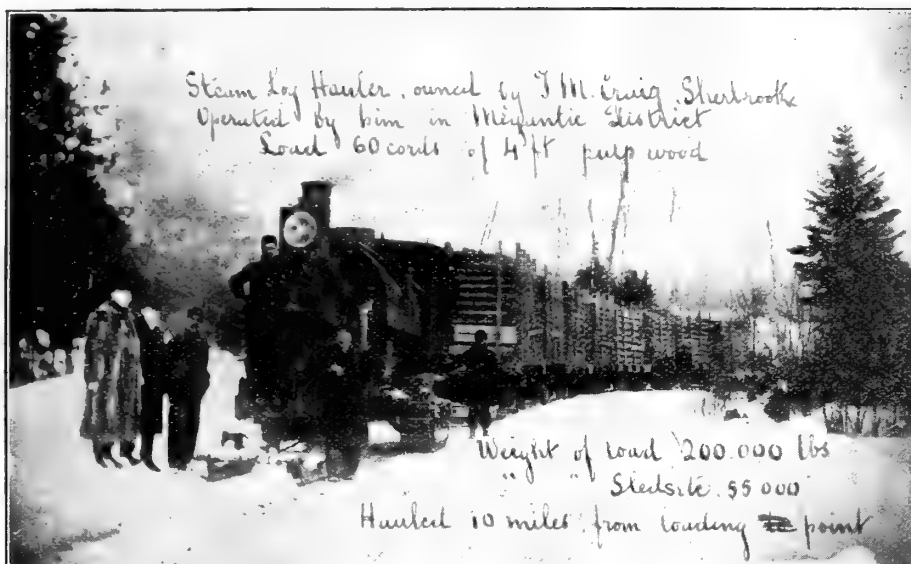 Steam Log Hauler, owned by J. M. Craig, Sherbrooke
Operated by him in Megantic District
Load 60 cords of 4 ft pulp wood
Weight of load 200.000 lbs
" "
Hauled 10 miles from loading point